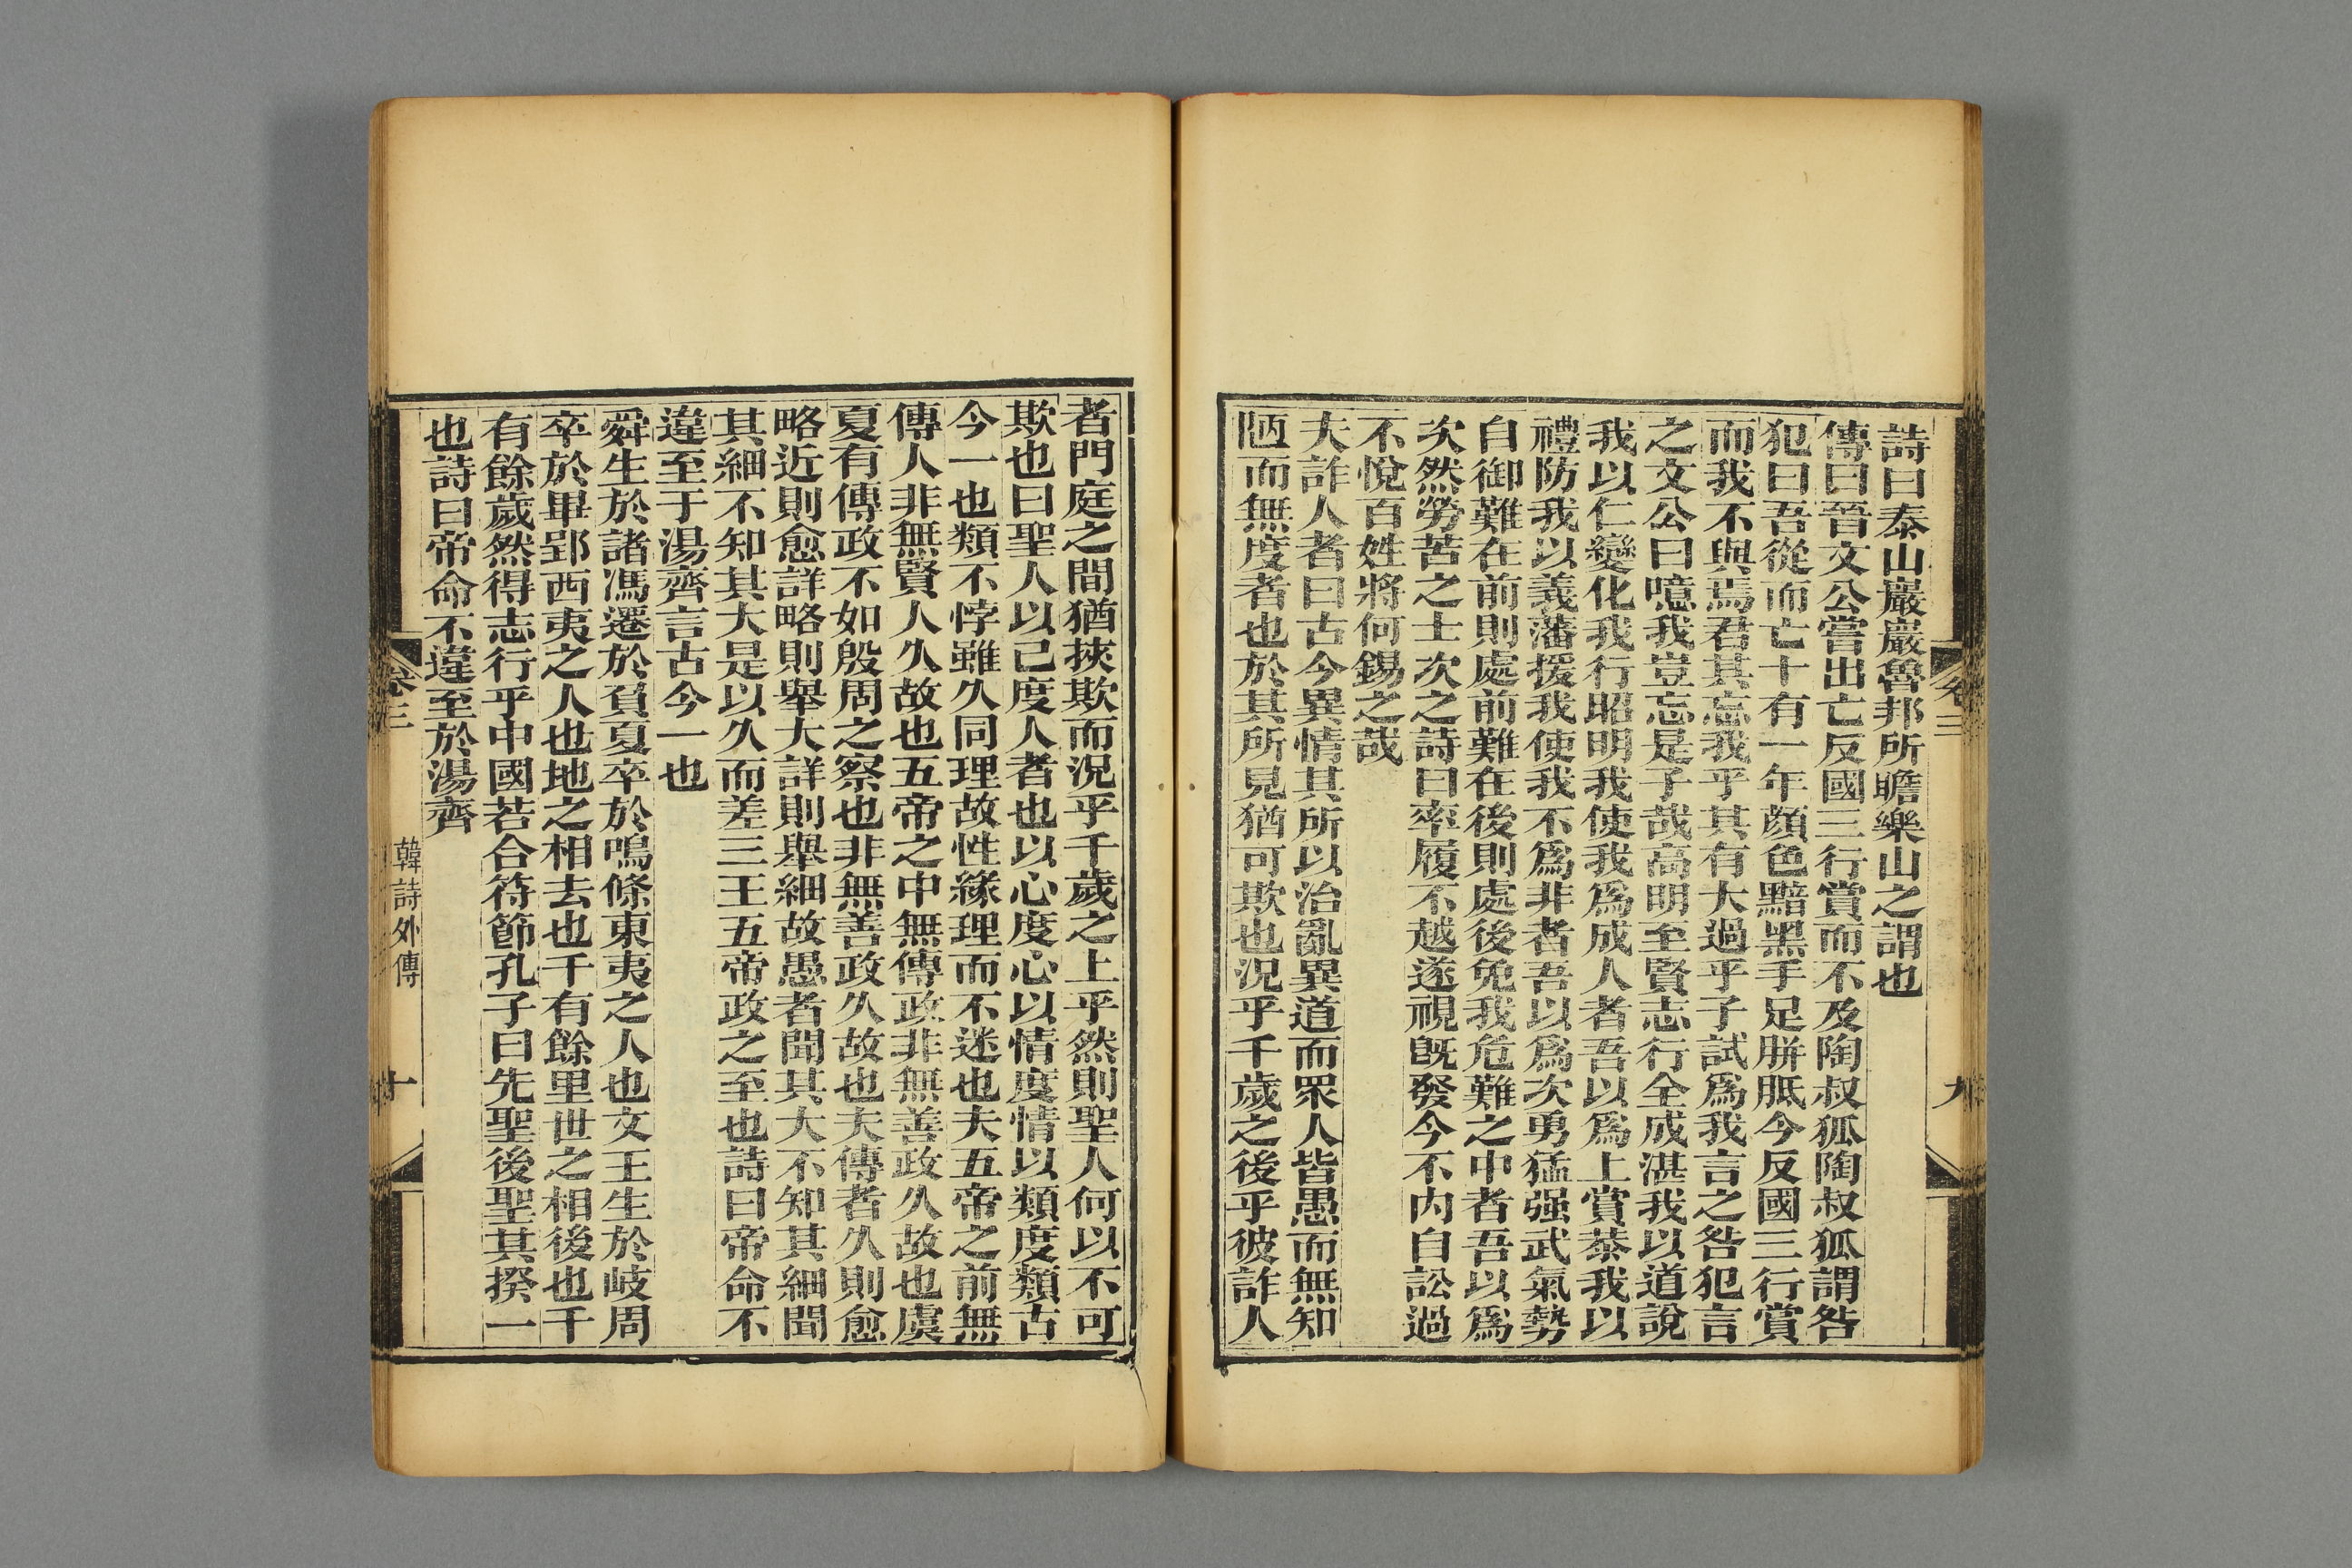 詩曰泰山巖巖魯邦所瞻樂山之謂也
傳曰晉文公嘗出亡反國三行賞而不及陶叔狐陶叔狐謂咎
犯曰吾從而亡十有一年顔色黯黑手足胼胝今反國三行賞
而我不與焉君其忘我乎其有大過乎子試爲我言之咎犯言
之文公曰噫我豈忘是子哉高明至賢志行全成湛我以道說
我以仁變化我行昭明我使我爲成人者吾以爲上賞恭我以
禮防我以義藩援我使我不爲非者吾以爲次勇猛强武氣勢
自御難在前則處前難在後則處後免我危難之中者吾以爲
次然勞苦之士次之詩曰率履不越遂視旣發今不内自訟過
不悅百姓將何錫之哉
夫詐人者曰古今異情其所以治亂異道而眾人皆愚而無知
陋而無度者也於其所見猶可欺也況乎千歲之後乎彼詐人
卷三
九
者門庭之間猶挾欺而況乎千歲之上乎然則聖人何以不可
欺也曰聖人以己度人者也以心度心以情度情以類度類古
今一也類不悖雖久同理故性緣理而不迷也夫五帝之前無
傳人非無賢人久故也五帝之中無傳政非無善政久故也虞
夏有傳政不如殷周之察也非無善政久故也夫傳者久則愈
略近則愈詳略則舉大詳則舉細故愚者聞其大不知其細聞
其細不知其大是以久而差三王五帝政之至也詩曰帝命不
違至于湯齊言古今一也
舜生於諸馮遷於負夏卒於鳴條東夷之人也文王生於岐周
卒於畢郢西夷之人也地之相去也千有餘里世之相後也千
有餘歲然得志行乎中國若合符節孔子曰先聖後聖其揆一
也詩曰帝命不違至於湯齊
卷三
韓詩外傳
十